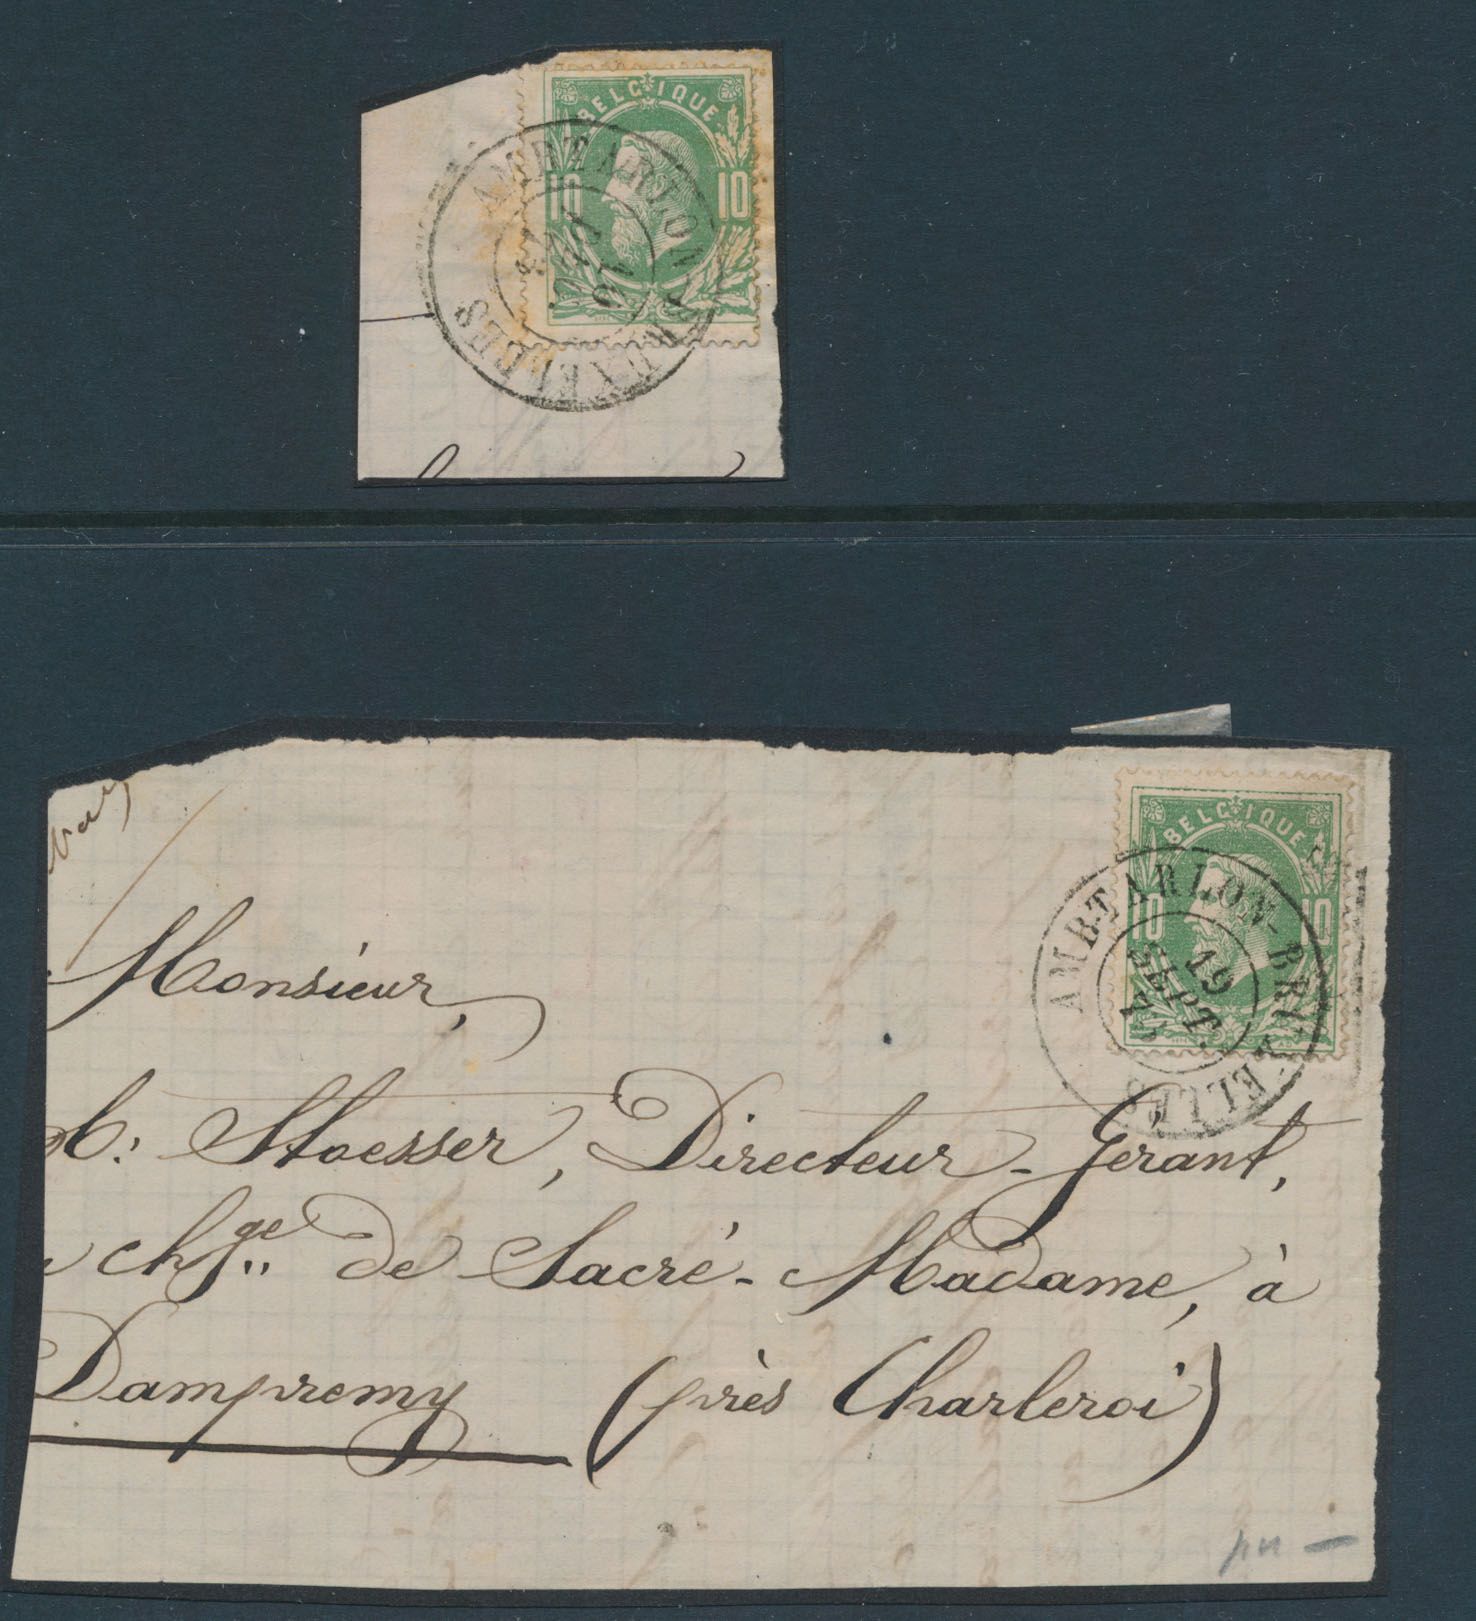 BELGIQUE
10 10
AMBT ARLON BRUXELLES
BELGIQUE
10 10
AMBT ARLON-BRUXELLES
19
SEPT.
Monsieur,
Stoesser, Directeur-Gérant,
chge. de Sacré-Madame, à
Dampremy (près Charleroi)